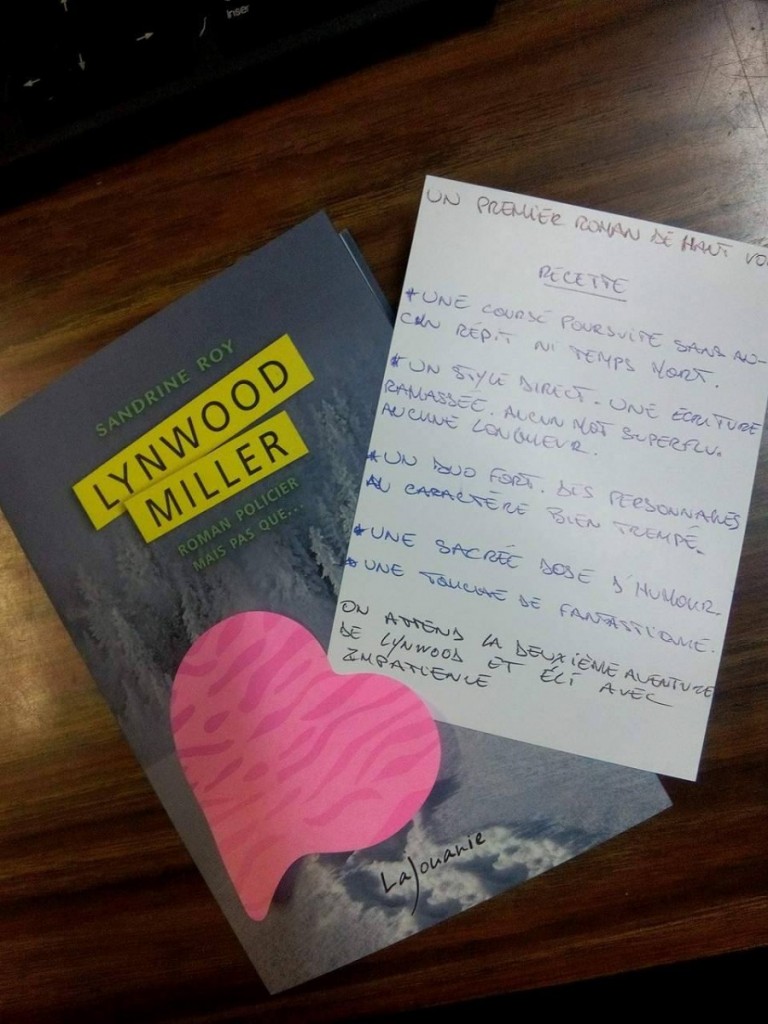 Inser
SANDRINE ROY
LYNWOOD
MILLER
ROMAN POLICIER
MAIS PAS QUE...
LaJouanie
UN PREMIER ROMAN DE HAUT VO
RECETTE
*UNE COURSE POURSUITE SANS AU-
CUN RÉPIT NI TEMPS MORT.
*UN STYLE DIRECT. UNE ÉCRITURE
RAMASSÉE. AUCUN MOT SUPERFLU.
AUCUNE LONGUEUR.
*UN DUO FORT. DES PERSONNAGES
AU CARACTÈRE BIEN TREMPÉ.
*UNE SACRÉE DOSE D'HUMOUR
*UNE TOUCHE DE FANTASTIQUE.
ON ATTEND LA DEUXIÈME AVENTURE
DE LYNWOOD ET ÉLI AVEC
IMPATIENCE